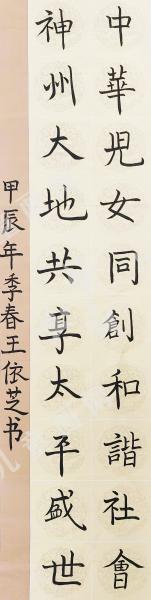 中華兒女同創和諧社會
神州大地共享太平盛世
甲辰年季春王依芝书